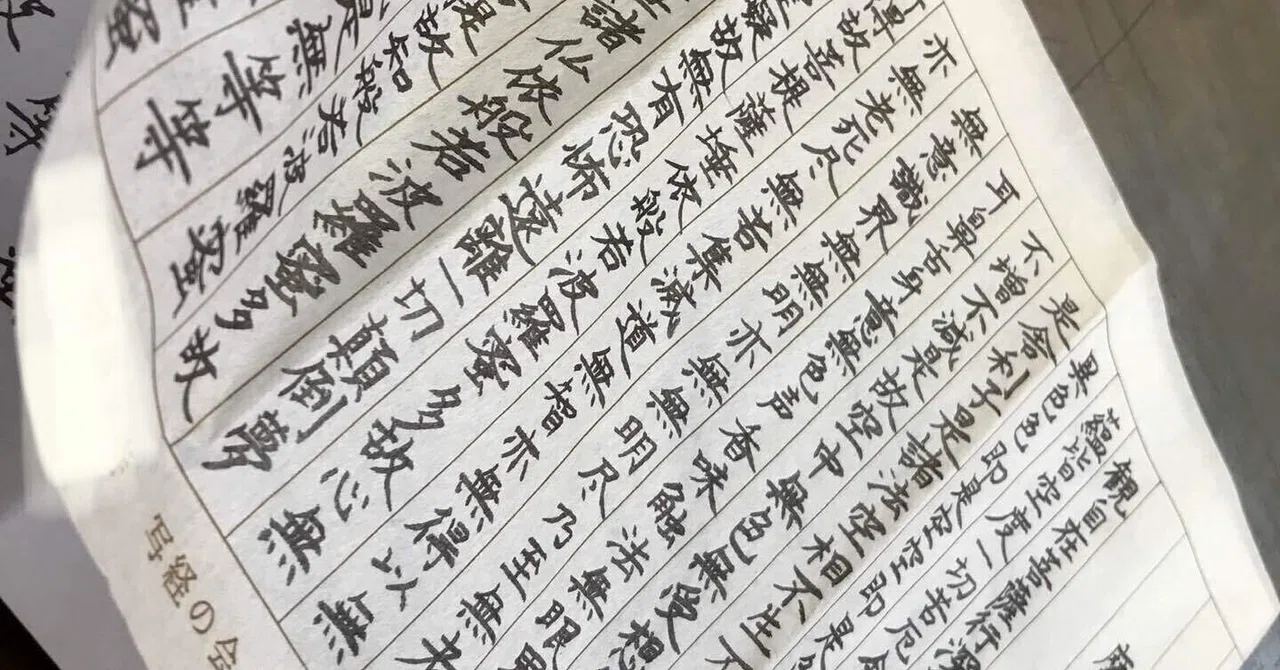 観自在菩薩行深
蘊皆空度一切苦厄舎
異色色即是空空即是
是舎利子是諸法空相不生不
不増不減是故空中無色無受想
耳鼻舌身意無色声香味触法無眼
無意識界無無明亦無無明尽乃至無老
亦無老死尽無苦集滅道無智亦無得以無
得故菩提薩埵依般若波羅蜜多故心無
礙故無有恐怖遠離一切顛倒夢
諸仏依般若波羅蜜多故
提故知般若波羅蜜
是無等等
写経の会